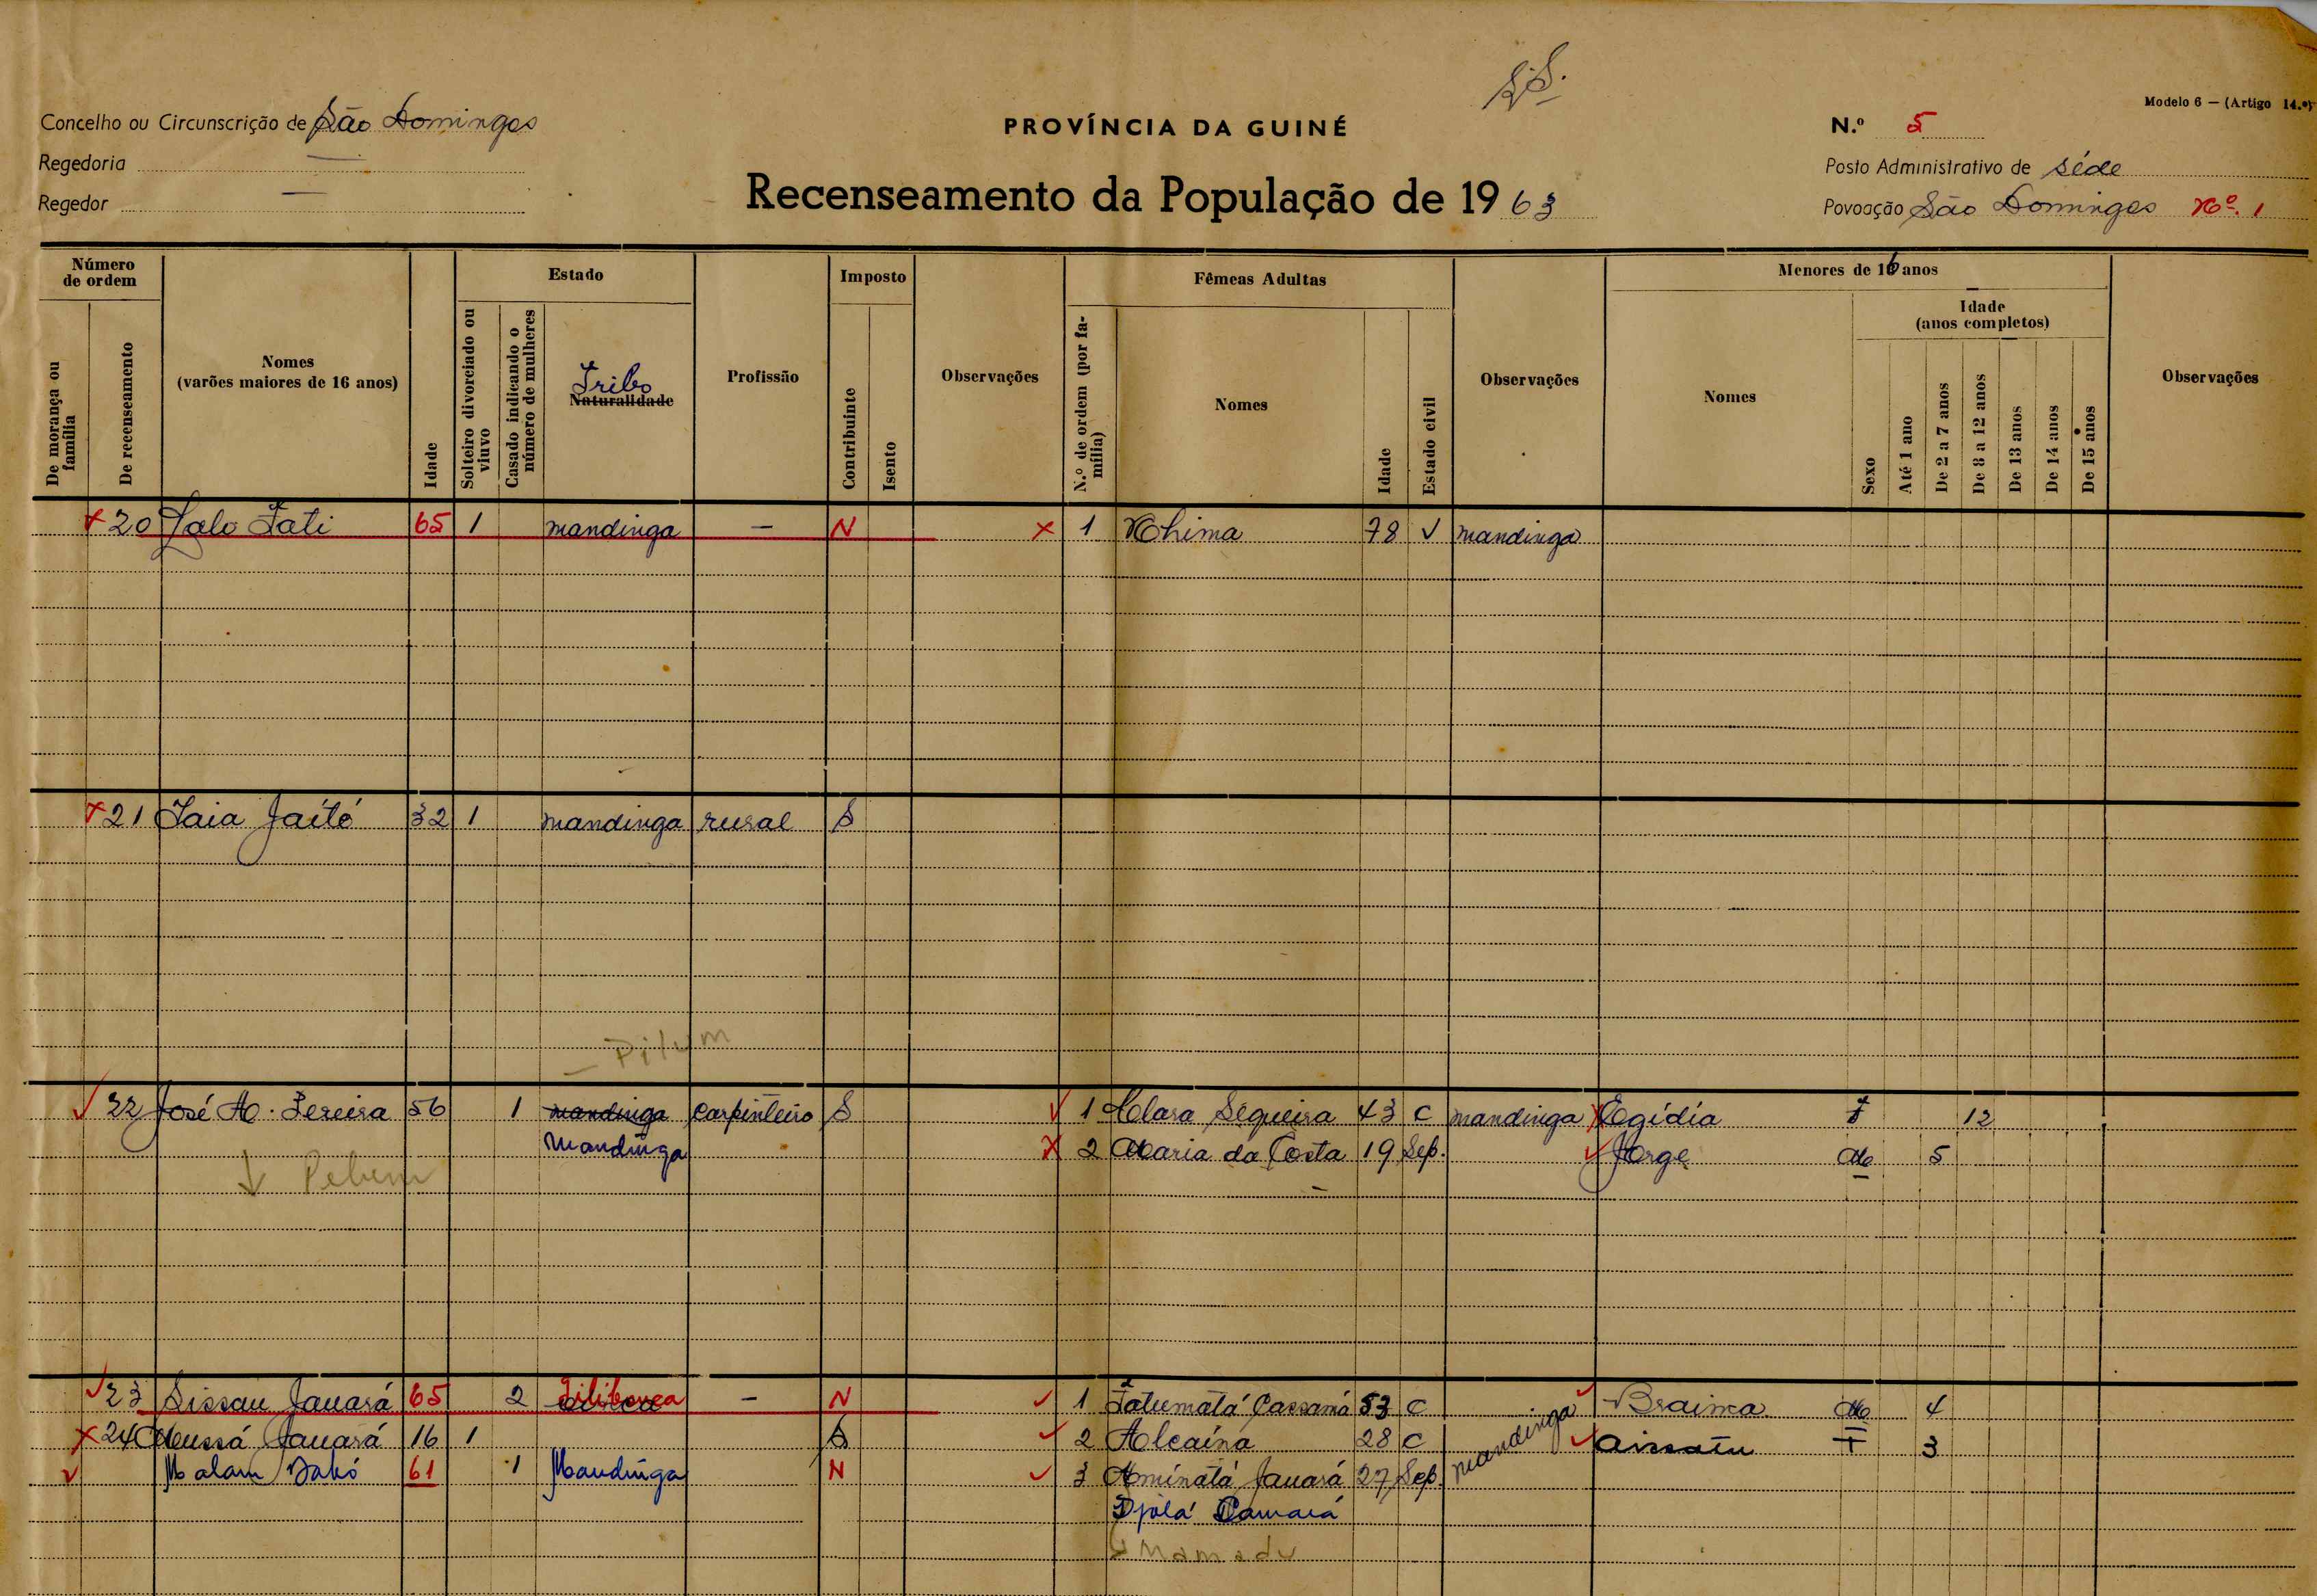 S.S.
Modelo 6 — (Artigo 14.º)
Concelho ou Circunscrição de São Domingos
PROVÍNCIA DA GUINÉ
N.º 5
Regedoria —
Posto Administrativo de séde
Regedor —
Recenseamento da População de 1963
Povoação São Domingos Nº. 1
Número de ordem
Estado
Imposto
Fêmeas Adultas
Menores de 16 anos
Idade (anos completos)
De morança ou família
De recenseamento
Nomes (varões maiores de 16 anos)
Idade
Solteiro divorciado ou viuvo
Casado indicando o número de mulheres
Tribo
Naturalidade
Profissão
Contribuinte
Isento
Observações
N.º de ordem (por família)
Nomes
Idade
Estado civil
Observações
Nomes
Sexo
Até 1 ano
De 2 a 7 anos
De 8 a 12 anos
De 13 anos
De 14 anos
De 15 anos
Observações
x 20 Lalo Fati 65 1 mandinga — N x 1 Nhima 78 V mandinga
x 21 Iaia Jaité 32 1 mandinga rural S
— Pilum
✓ 22 José A. Pereira 56 1 mandinga carpinteiro S ✓ 1 Clara Sequeira 43 C mandinga x Egídia F 12
Mandinga x 2 Maria da Costa 19 Sep. ✓ Jorge M 5
↓ Pelum
✓ 23 Sissau Jauará 65 2 — N ✓ 1 Fatumatá Cassamá 53 C mandinga ✓ Braima M 4
x 24 Mussá Jauará 16 1 S ✓ 2 Alcaína 28 C ✓ Aissatu F 3
✓ Malam 61 1 Mandinga N ✓ 3 Aminatá Jauará 27 Sep.
Djolá Camará
Mamadu